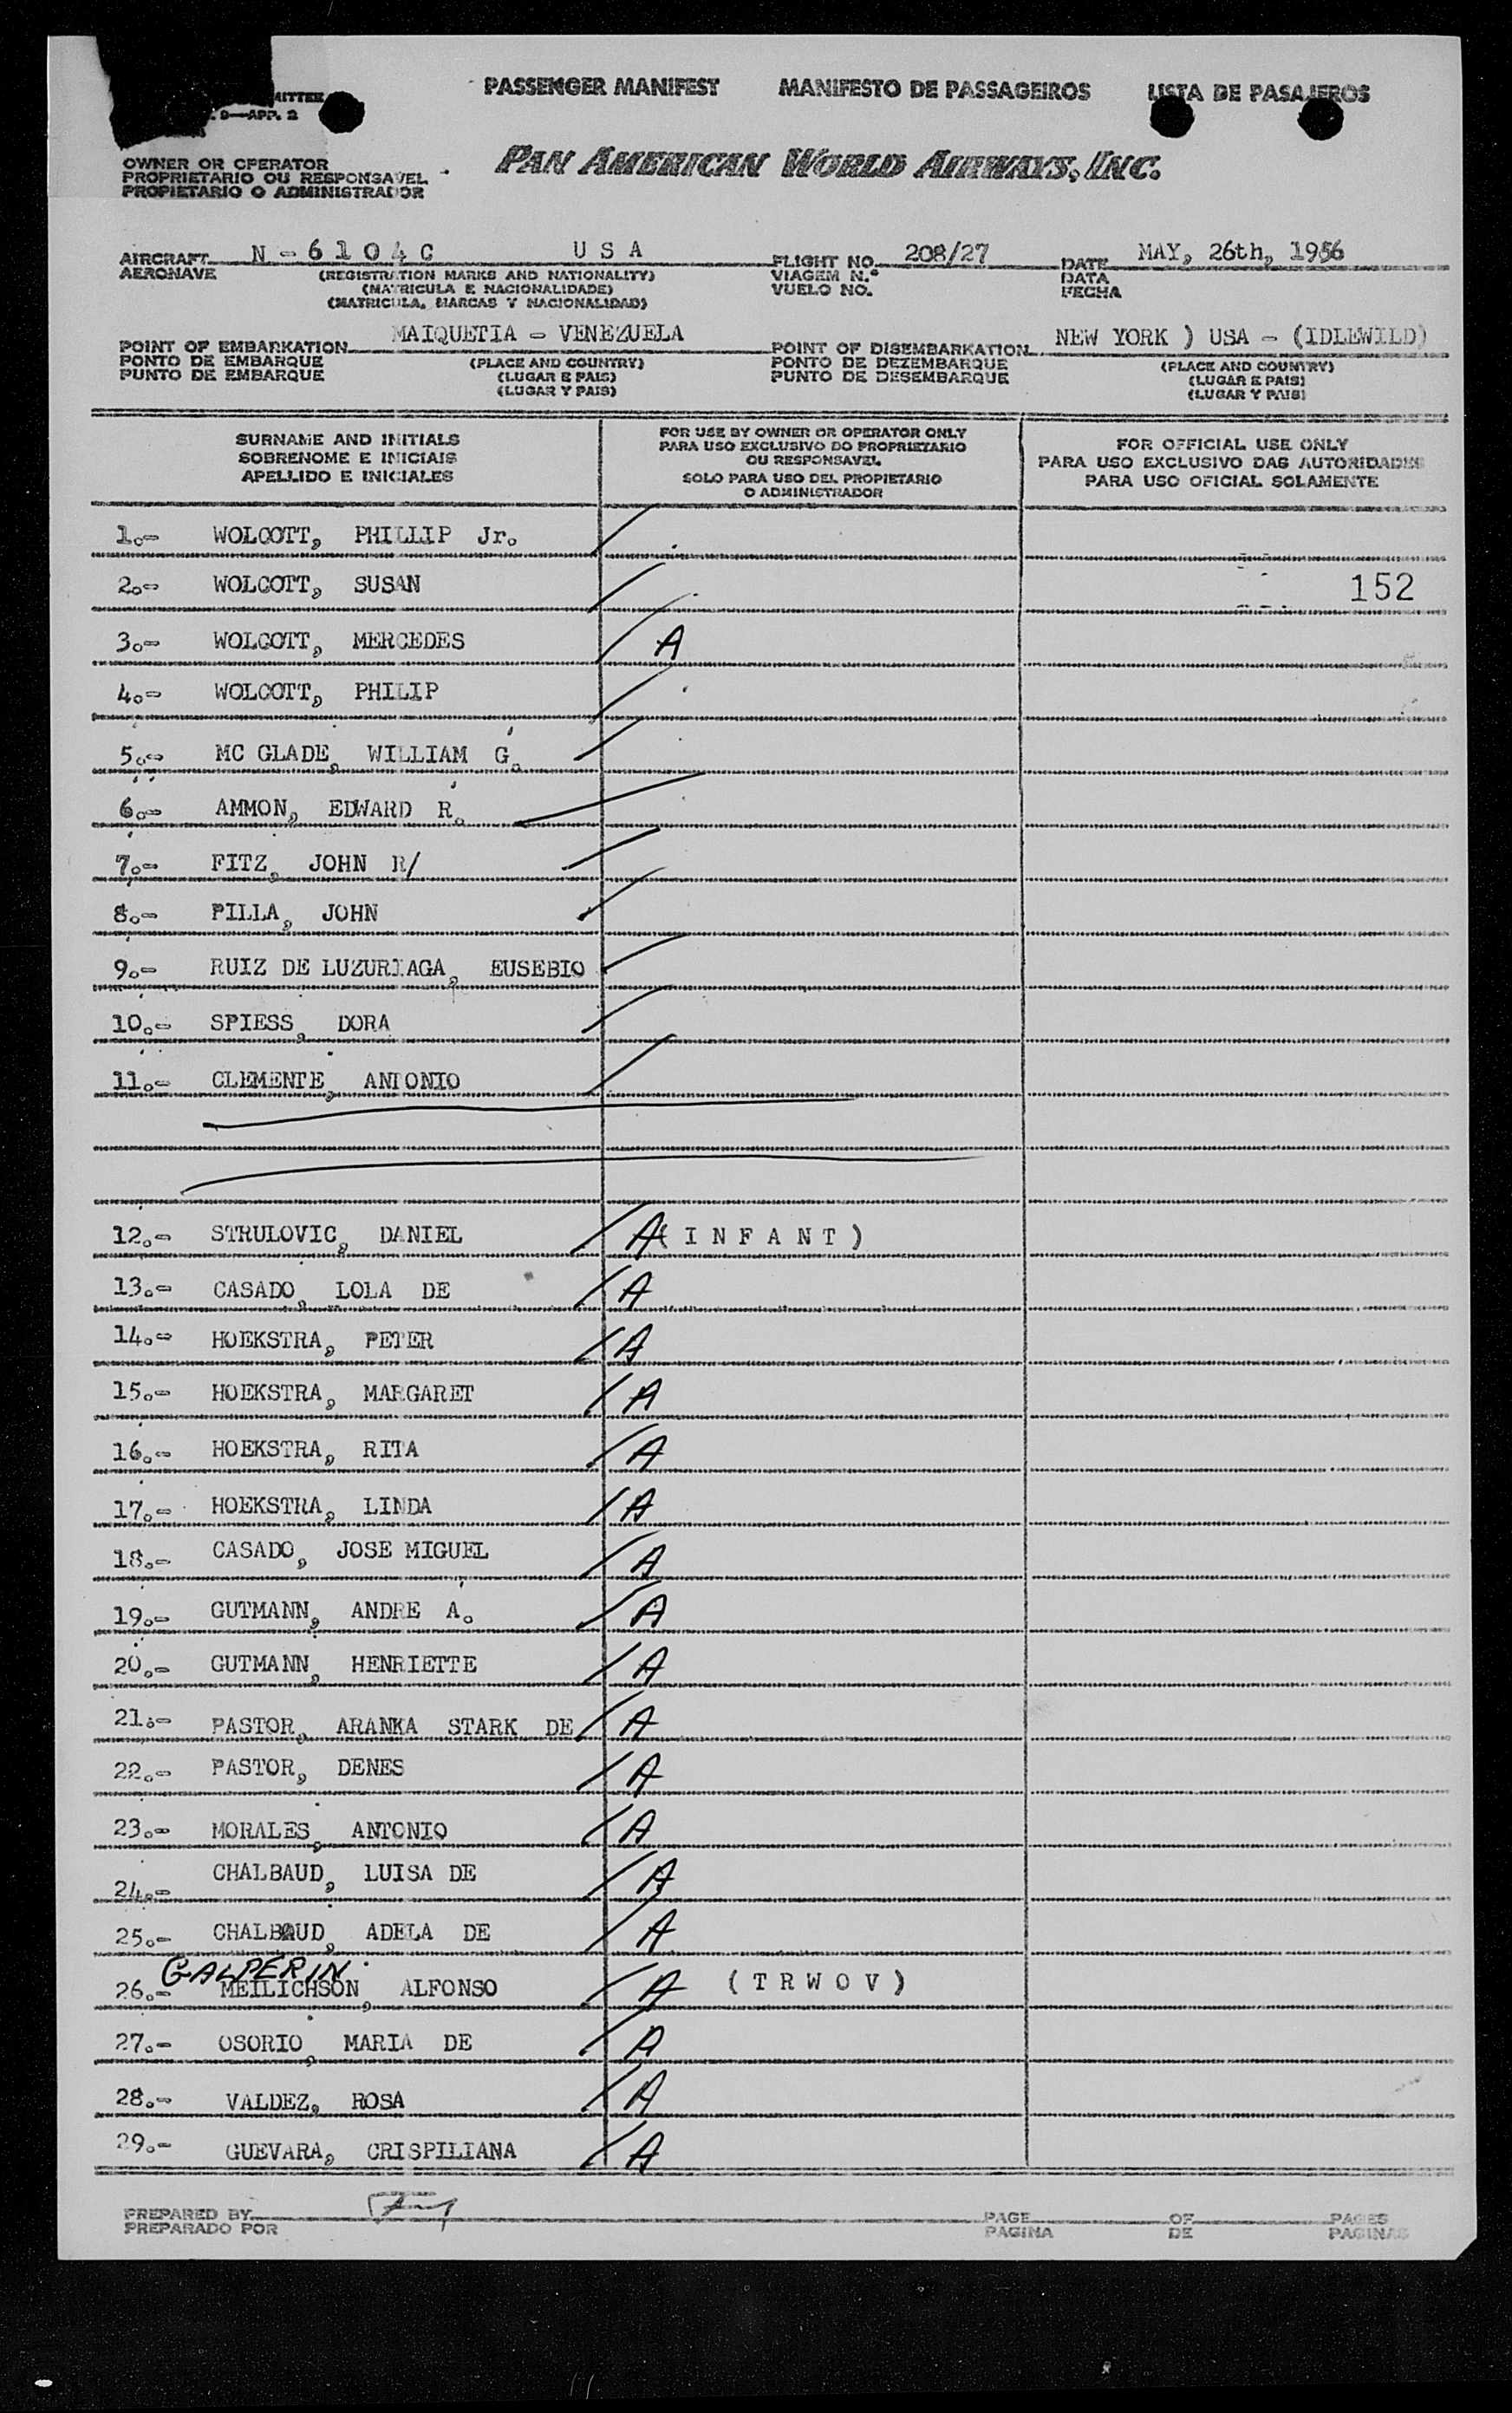 PASSENGER MANIFEST MANIFESTO DE PASSAGEIROS LISTA DE PASAJEROS
9—APP. 2
OWNER OR OPERATOR
PROPRIETARIO OU RESPONSAVEL
PROPIETARIO O ADMINISTRADOR
PAN AMERICAN WORLD AIRWAYS, INC.
AIRCRAFT N-6104C USA FLIGHT NO. 208/27 DATE MAY, 26th, 1956
AERONAVE (REGISTRATION MARKS AND NATIONALITY) VIAGEM N.º DATA
(MATRICULA E NACIONALIDADE) VUELO NO. FECHA
(MATRICULA, MARCAS Y NACIONALIDAD)
POINT OF EMBARKATION MAIQUETIA - VENEZUELA POINT OF DISEMBARKATION NEW YORK ) USA - (IDLEWILD)
PONTO DE EMBARQUE (PLACE AND COUNTRY) PONTO DE DEZEMBARQUE (PLACE AND COUNTRY)
PUNTO DE EMBARQUE (LUGAR E PAIS) PUNTO DE DESEMBARQUE (LUGAR E PAIS)
(LUGAR Y PAIS) (LUGAR Y PAIS)
SURNAME AND INITIALS
SOBRENOME E INICIAIS
APELLIDO E INICIALES
FOR USE BY OWNER OR OPERATOR ONLY
PARA USO EXCLUSIVO DO PROPRIETARIO
OU RESPONSAVEL
SOLO PARA USO DEL PROPIETARIO
O ADMINISTRADOR
FOR OFFICIAL USE ONLY
PARA USO EXCLUSIVO DAS AUTORIDADES
PARA USO OFICIAL SOLAMENTE
1.- WOLCOTT, PHILLIP Jr.
2.- WOLCOTT, SUSAN 152
3.- WOLCOTT, MERCEDES A
4.- WOLCOTT, PHILIP
5.- MC GLADE, WILLIAM G.
6.- AMMON, EDWARD R.
7.- FITZ, JOHN R/
8.- PILLA, JOHN
9.- RUIZ DE LUZURIAGA, EUSEBIO
10.- SPIESS, DORA
11.- CLEMENTE, ANTONIO
12.- STRULOVIC, DANIEL A (INFANT)
13.- CASADO, LOLA DE A
14.- HOEKSTRA, PETER A
15.- HOEKSTRA, MARGARET A
16.- HOEKSTRA, RITA A
17.- HOEKSTRA, LINDA A
18.- CASADO, JOSE MIGUEL A
19.- GUTMANN, ANDRE A. A
20.- GUTMANN, HENRIETTE A
21.- PASTOR, ARANKA STARK DE A
22.- PASTOR, DENES A
23.- MORALES, ANTONIO A
24.- CHALBAUD, LUISA DE A
25.- CHALBAUD, ADELA DE A
GALPERIN
26.- MEILICHSON, ALFONSO A (TRWOV)
27.- OSORIO, MARIA DE A
28.- VALDEZ, ROSA A
29.- GUEVARA, CRISPILIANA A
PREPARED BY PAGE OF PAGES
PREPARADO POR PAGINA DE PAGINAS